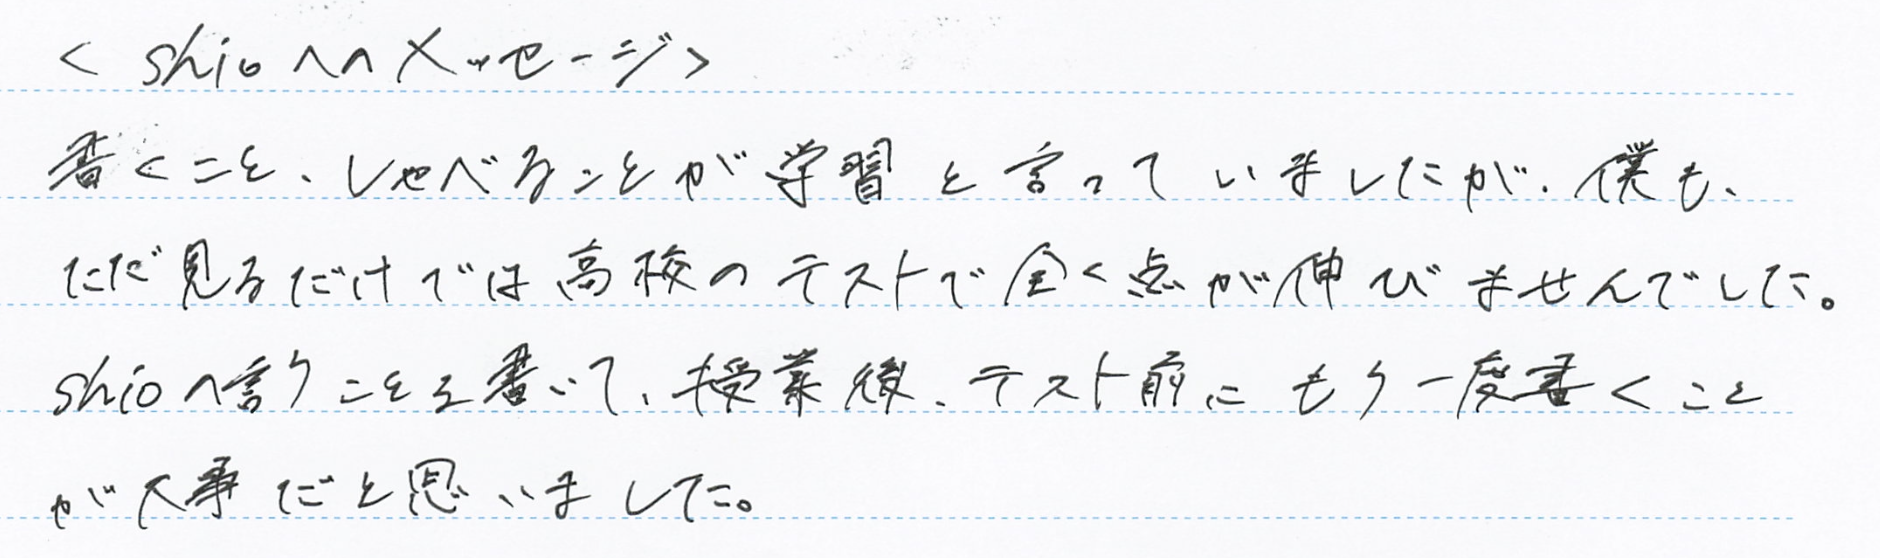 < shioへのメッセージ>
書くこと、しゃべることが学習と言っていましたが、僕も、
ただ見るだけでは高校のテストで全く点が伸びませんでした。
shioの言うことを書いて、授業後、テスト前にもう一度書くこと
が大事だと思いました。